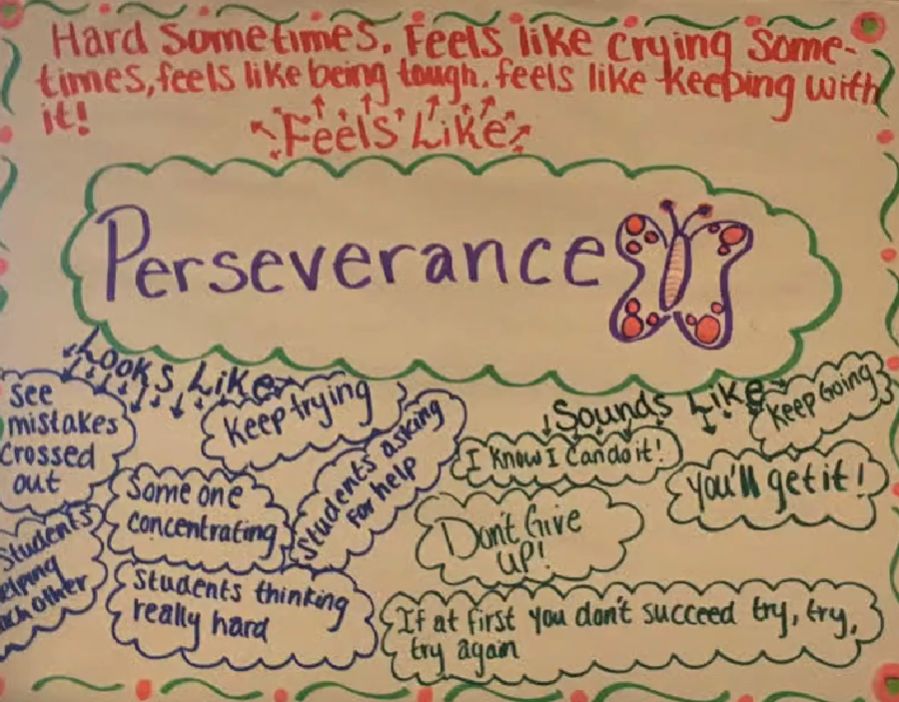 Hard Sometimes. Feels like crying Some-
times, feels like being tough. feels like keeping with
it!
Feels Like
Perseverance
Looks Like
See
mistakes
crossed
out
Keep trying
Students asking
for help
Some one
concentrating
Students
elping
ach other
Students thinking
really hard
Sounds Like
Keep Going
I Know I Can do it!
you'll get it!
Don't Give
UP!
If at first you don't succeed try, try,
try again